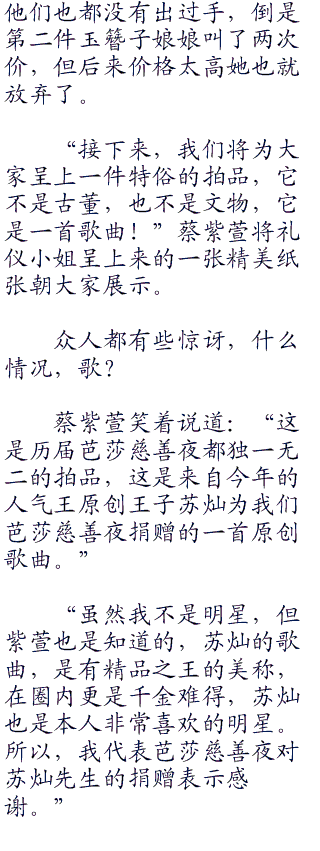 他们也都没有出过手，倒是
第二件玉簪子娘娘叫了两次
价，但后来价格太高她也就
放弃了。
“接下来，我们将为大
家呈上一件特俗的拍品，它
不是古董，也不是文物，它
是一首歌曲！”蔡紫萱将礼
仪小姐呈上来的一张精美纸
张朝大家展示。
众人都有些惊讶，什么
情况，歌？
蔡紫萱笑着说道：“这
是历届芭莎慈善夜都独一无
二的拍品，这是来自今年的
人气王原创王子苏灿为我们
芭莎慈善夜捐赠的一首原创
歌曲。”
“虽然我不是明星，但
紫萱也是知道的，苏灿的歌
曲，是有精品之王的美称，
在圈内更是千金难得，苏灿
也是本人非常喜欢的明星。
所以，我代表芭莎慈善夜对
苏灿先生的捐赠表示感
谢。”